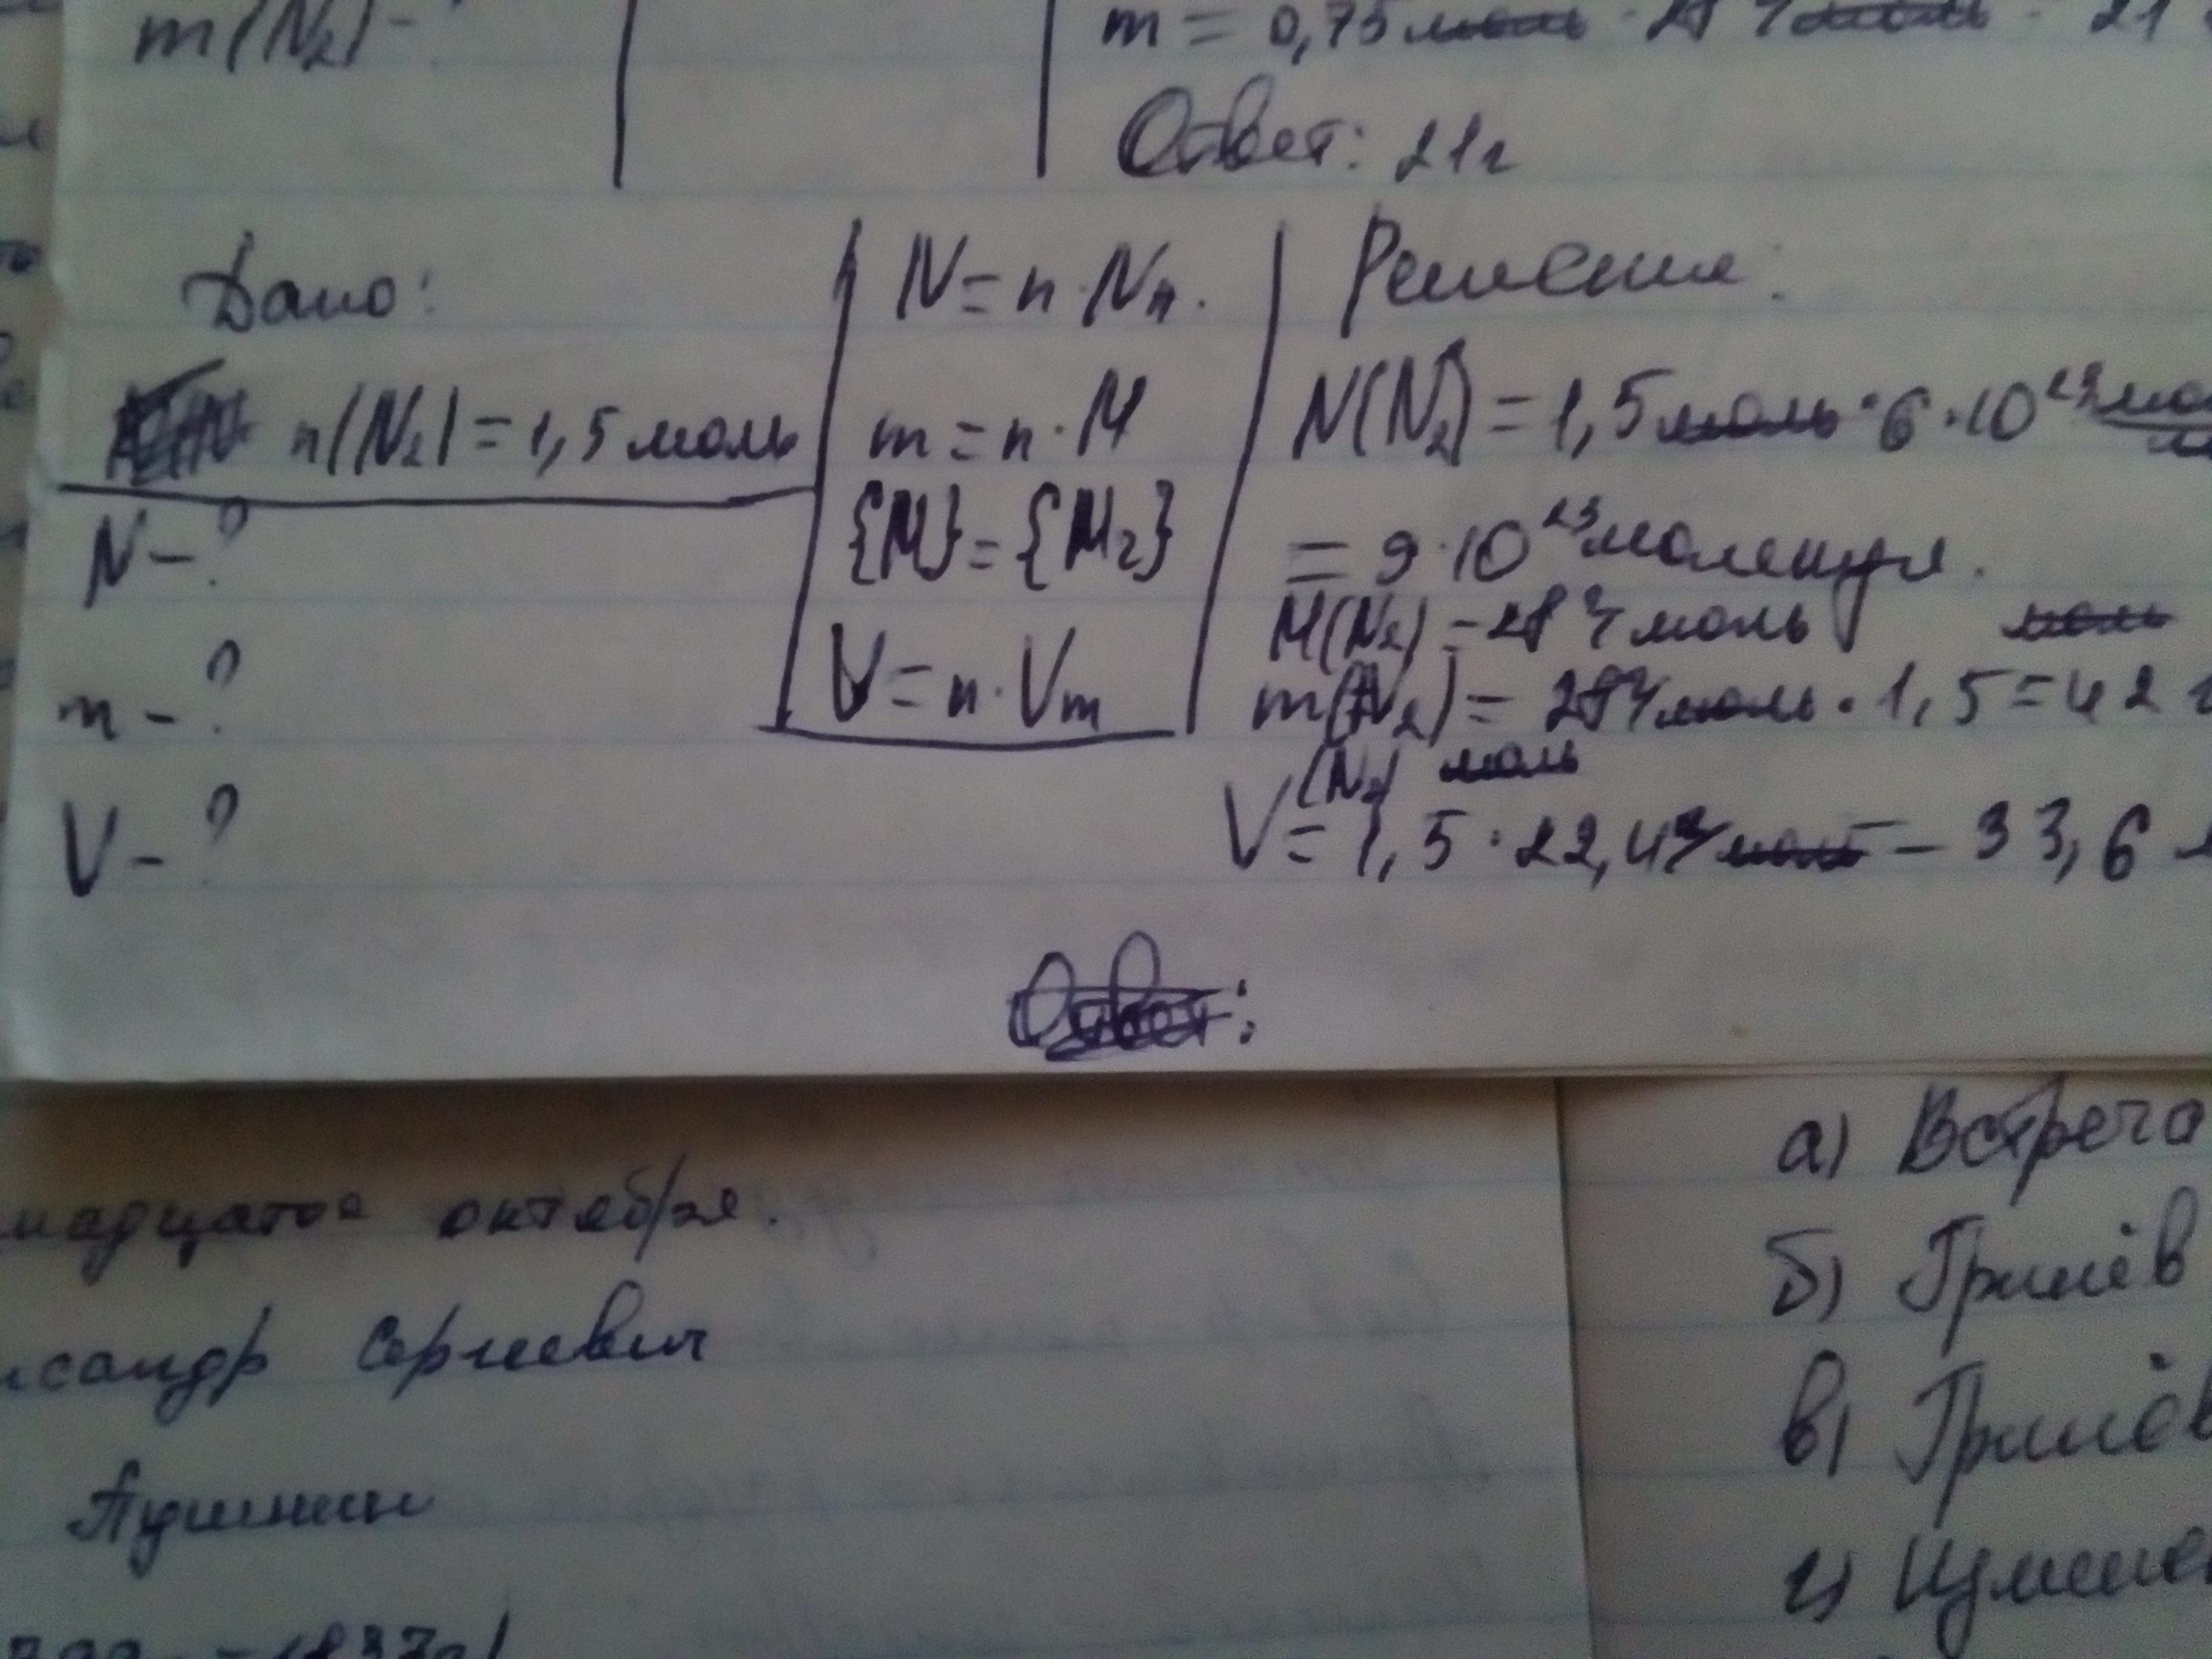 m(N₂)-?
m = 0,75 моль · 28 г/моль = 21
Ответ: 21г
Дано:
n(N₂) = 1,5 моль
N - ?
m - ?
V - ?
N = n · Nₙ.
m = n · M
{M} = {Mr}
V = n · Vm
Решение:
N(N₂) = 1,5 моль · 6 · 10²³
= 9 · 10²³ молекул.
M(N₂) = 28 г/моль
моль
m(N₂) = 28 г/моль · 1,5 = 42 г
(N₂) моль
V = 1,5 · 22,4 л/моль = 33,6 л
Ответ:
надцатое октября.
ксандр Сергеевич
Пушкин
1837г)
а) Встреча
б) Гринёв
в) Гринёв
г)